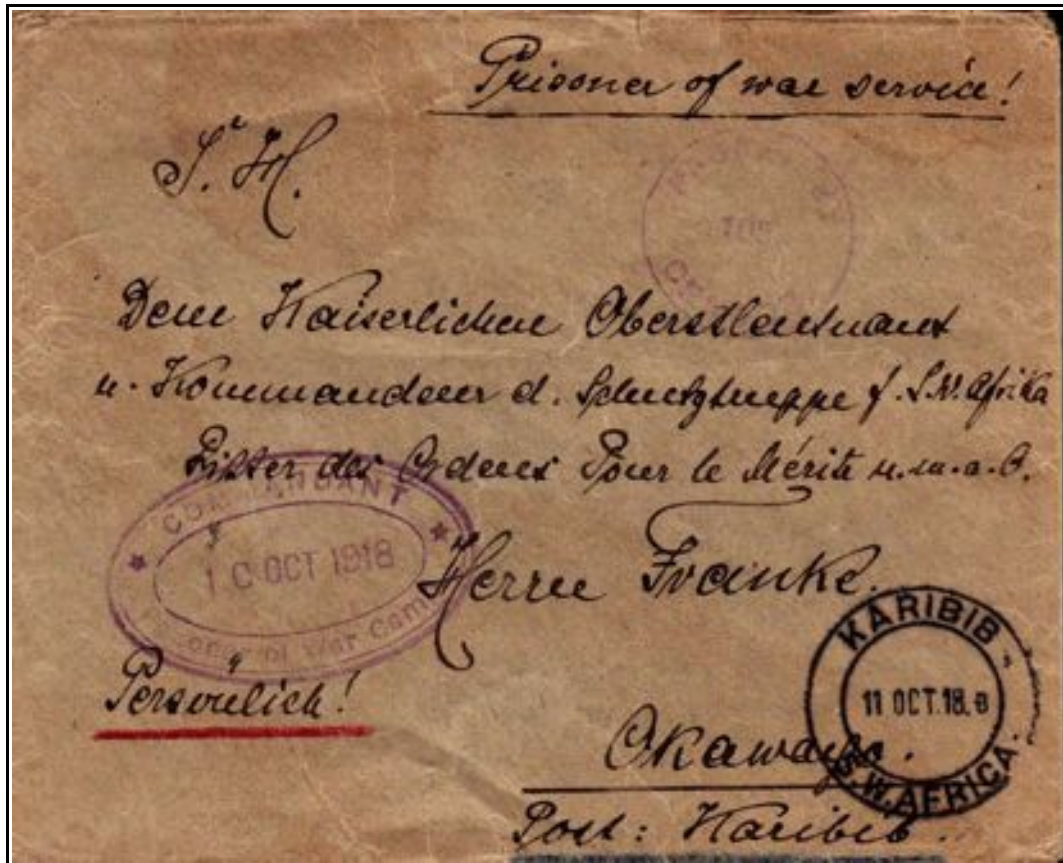 Prisoner of war service!
Sr. H.
Dem Kaiserlichen Oberstleutnant
u. Kommandeur d. Schutztruppe f. S.W. Afrika
Ritter des Ordens Pour le Mérite u.m.a.O.
COMMANDANT
10 OCT 1918
Prisoner of War Camp
Herrn Franke.
Persönlich!
KARIBIB
11 OCT.18.8
S.W.AFRICA.
Post: Karibib.